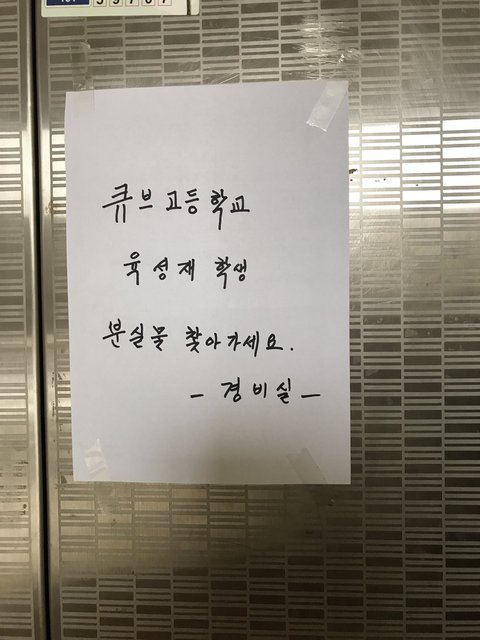 큐브 고등학교
육성재 학생
분실물 찾아가세요.
- 경비실 -